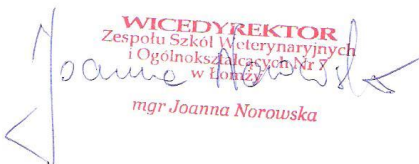 WICEDYREKTOR
Zespołu Szkół Weterynaryjnych
i Ogólnokształcących Nr 7
w Łomży
Joanna Norowska
mgr Joanna Norowska